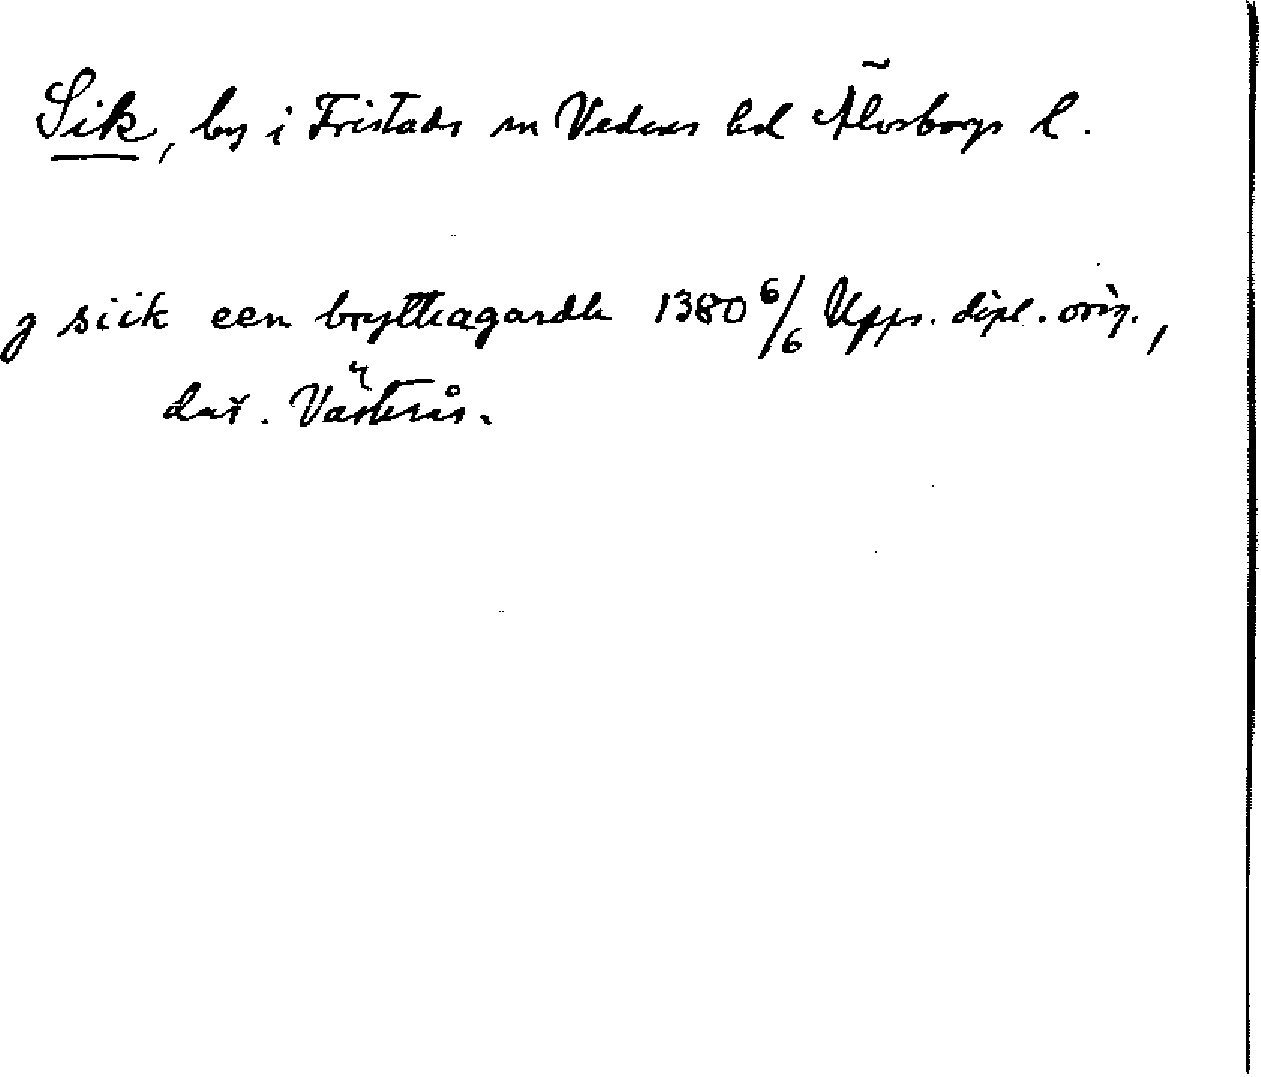 Sik, by i Fristads sn Vedens hd Älvsborgs l.
j siik een bryttiagardh 1380 6/6 Upps. dipl. orig.,
dat. Västerås.